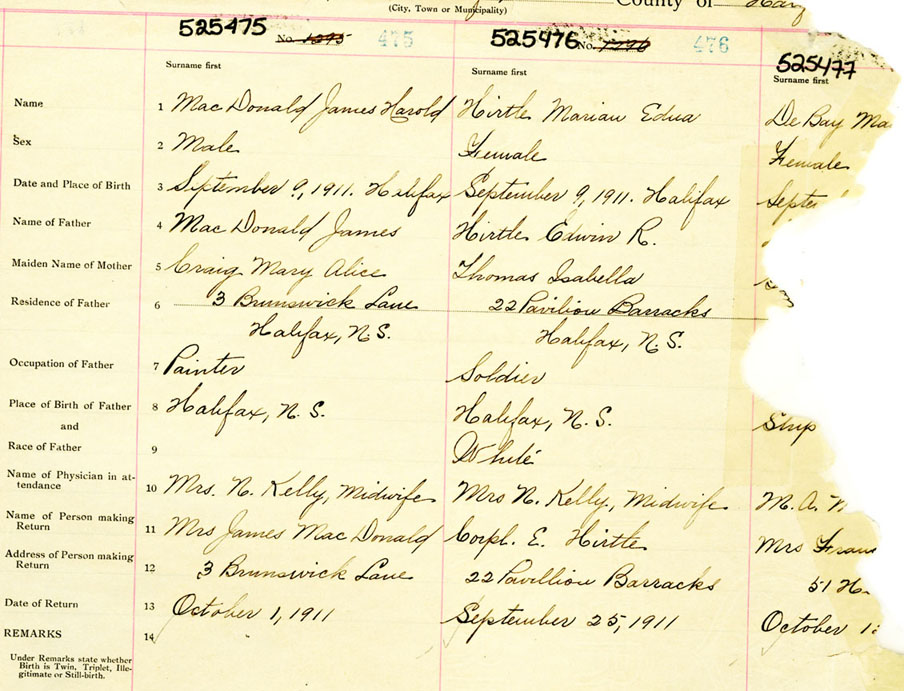 (City, Town or Municipality) County of
525475 No. 1295 475 525476 No. 1296 476 525477
Surname first Surname first Surname first
Name 1 Mac Donald James Harold Hirtle Marian Edna De Bay Ma
Sex 2 Male Female Female
Date and Place of Birth 3 September 9, 1911. Halifax September 9, 1911. Halifax Septe
Name of Father 4 Mac Donald James Hirtle Edwin R.
Maiden Name of Mother 5 Craig Mary Alice Thomas Isabella
Residence of Father 6 3 Brunswick Lane 22 Pavilion Barracks
Halifax, N.S. Halifax, N.S.
Occupation of Father 7 Painter Soldier
Place of Birth of Father 8 Halifax, N.S. Halifax, N.S. Ship
and
Race of Father 9 White
Name of Physician in at-
tendance 10 Mrs. N. Kelly, Midwife Mrs N. Kelly, Midwife M. A.
Name of Person making
Return 11 Mrs James Mac Donald Corpl. E. Hirtle Mrs Fran
Address of Person making
Return 12 3 Brunswick Lane 22 Pavillion Barracks 51 H
Date of Return 13 October 1, 1911 September 25, 1911 October 1
REMARKS 14
Under Remarks state whether
Birth is Twin, Triplet, Ille-
gitimate or Still-birth.